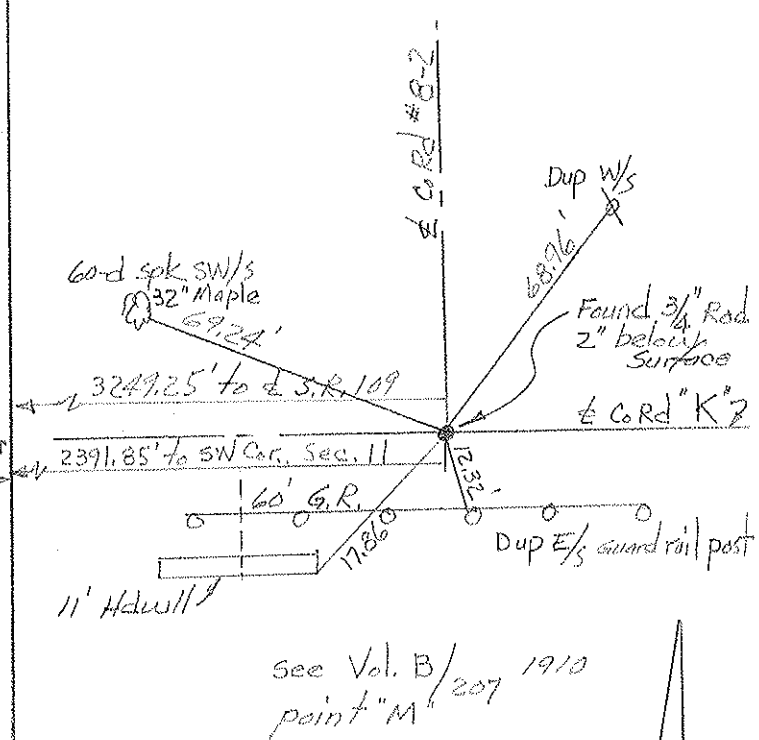 ℄ Co Rd #8-2
Dup W/s
68.96'
60-d spk SW/s
32" Maple
69.24'
Found 3/4" Rod
2" below
Surface
3249.25' to ℄ S.R. 109
℄ Co Rd "K"
2391.85' to SW Cor. Sec. 11
12.32'
60' G.R.
17.86'
Dup E/s Guard rail post
11' Hdwll
see Vol. B/207 1910
point "M"